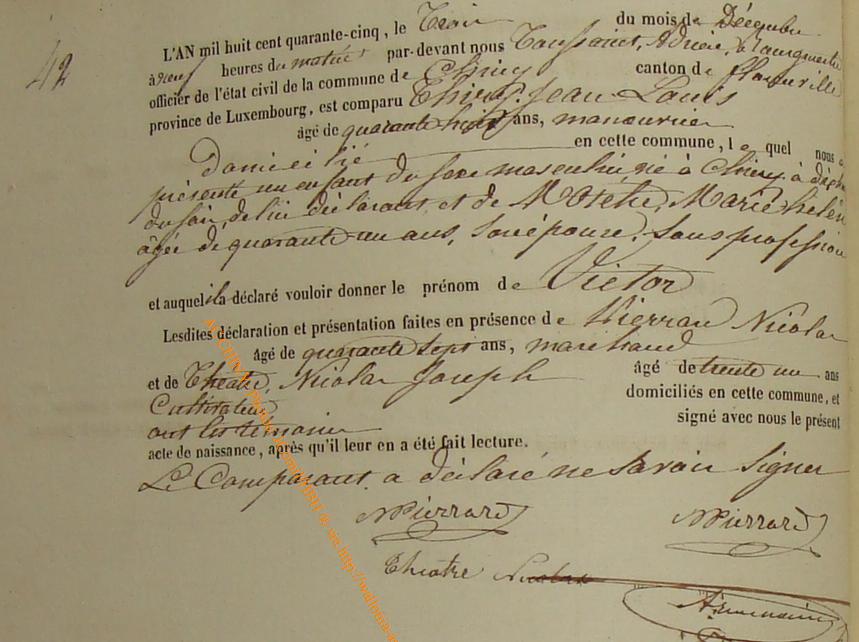 42
L'AN mil huit cent quarante-cinq, le Trois du mois de Décembre
à neuf heures du matin par-devant nous Toussaint, Adrien,
officier de l'état civil de la commune de Chiny canton de florenville
province de Luxembourg, est comparu Thiery Jean Louis
âgé de quarante huit ans, manouvrier
Domicilié en cette commune, le quel nous a
présenté un enfant du sexe masculin né à Chiny à
du soir, de lui déclarant et de Marie
âgée de quarante un ans, son épouse, sans profession
et auquel il a déclaré vouloir donner le prénom de Victor
Lesdites déclaration et présentation faites en présence de Pierrard Nicolas
âgé de quarante sept ans, marchand
et de Théâtre, Nicolas Joseph âgé de trente un ans
Cultivateur domiciliés en cette commune, et
ont les témoins signé avec nous le présent
acte de naissance, après qu'il leur en a été fait lecture.
Le Comparant a déclaré ne Savoir Signer
NPierrard NPierrard
Théatre Nicolas